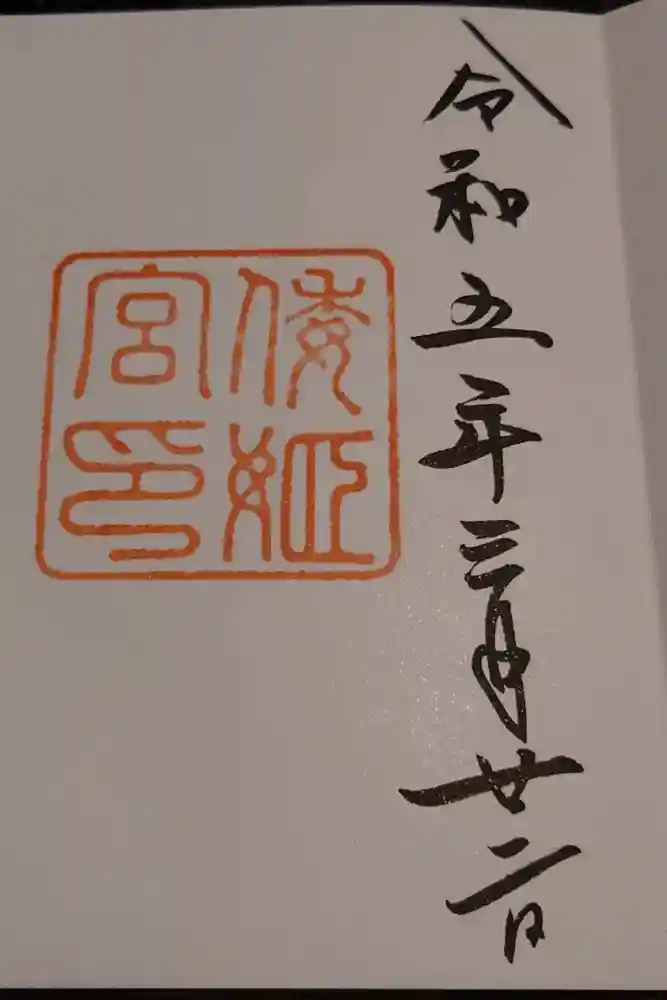 令和五年三月廿二日
倭姫
宮印